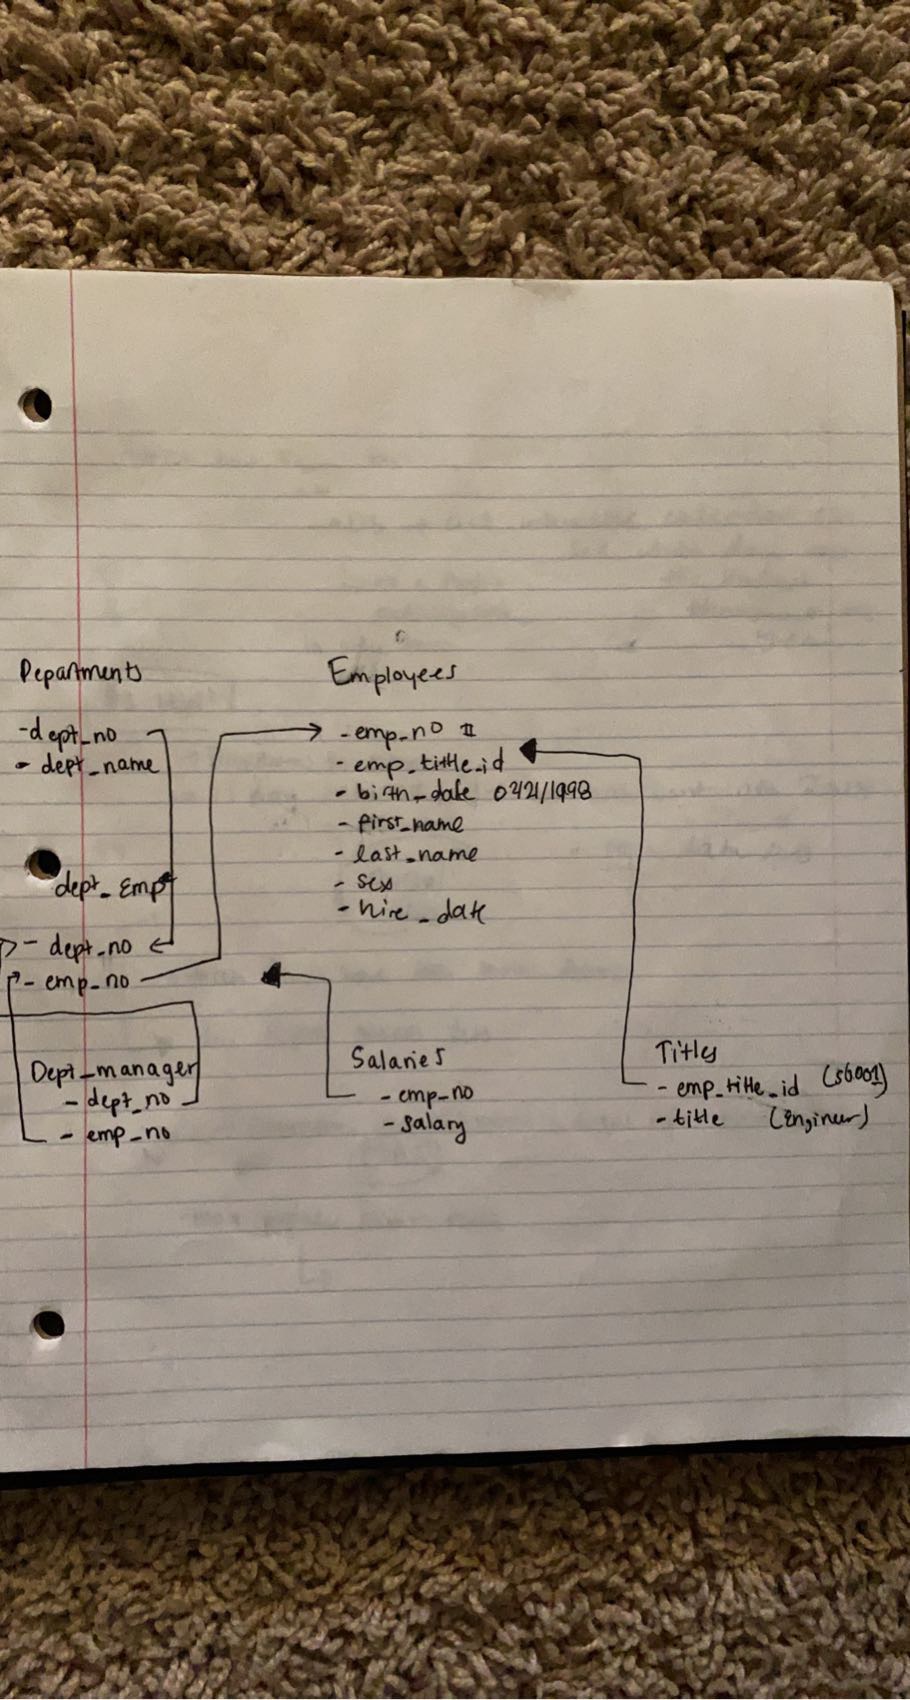 Departments
- dept_no
- dept_name
dept_Emp
- dept_no
- emp_no
Dept_manager
- dept_no
- emp_no
Employees
- emp_no
- emp_title_id
- birth_date
- first_name
- last_name
- sex
- hire_date
Salaries
- emp_no
- salary
Titles
- emp_title_id (s6001)
- title (Engineer)